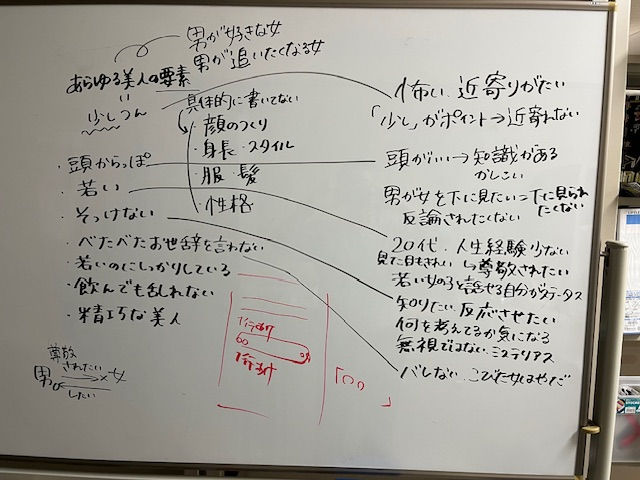 男が好きな女
男が追いたくなる女
あらゆる美人の要素
少しつん
具体的に書いてない
・顔のつくり
・身長・スタイル
・服・髪
・性格
・頭からっぽ
・若い
・そっけない
・べたべたお世辞を言わない
・若いのにしっかりしている
・飲んでも乱れない
・精巧な美人
尊敬
されたい
男 女
したい
怖い、近寄りがたい
「少し」がポイント→近寄れない
頭がいい→知識がある
かしこい
男が女を下に見たい=下に見られ
たくない
反論されたくない
20代、人生経験少ない
見た目もきれい ↳尊敬されたい
若い女の子と話せる自分がステータス
知りたい、反応させたい
何を考えてるか気になる
無視ではない、ミステリアス
バレない、こびた女はやだ
1行あけ
1行あけ
「○○
」